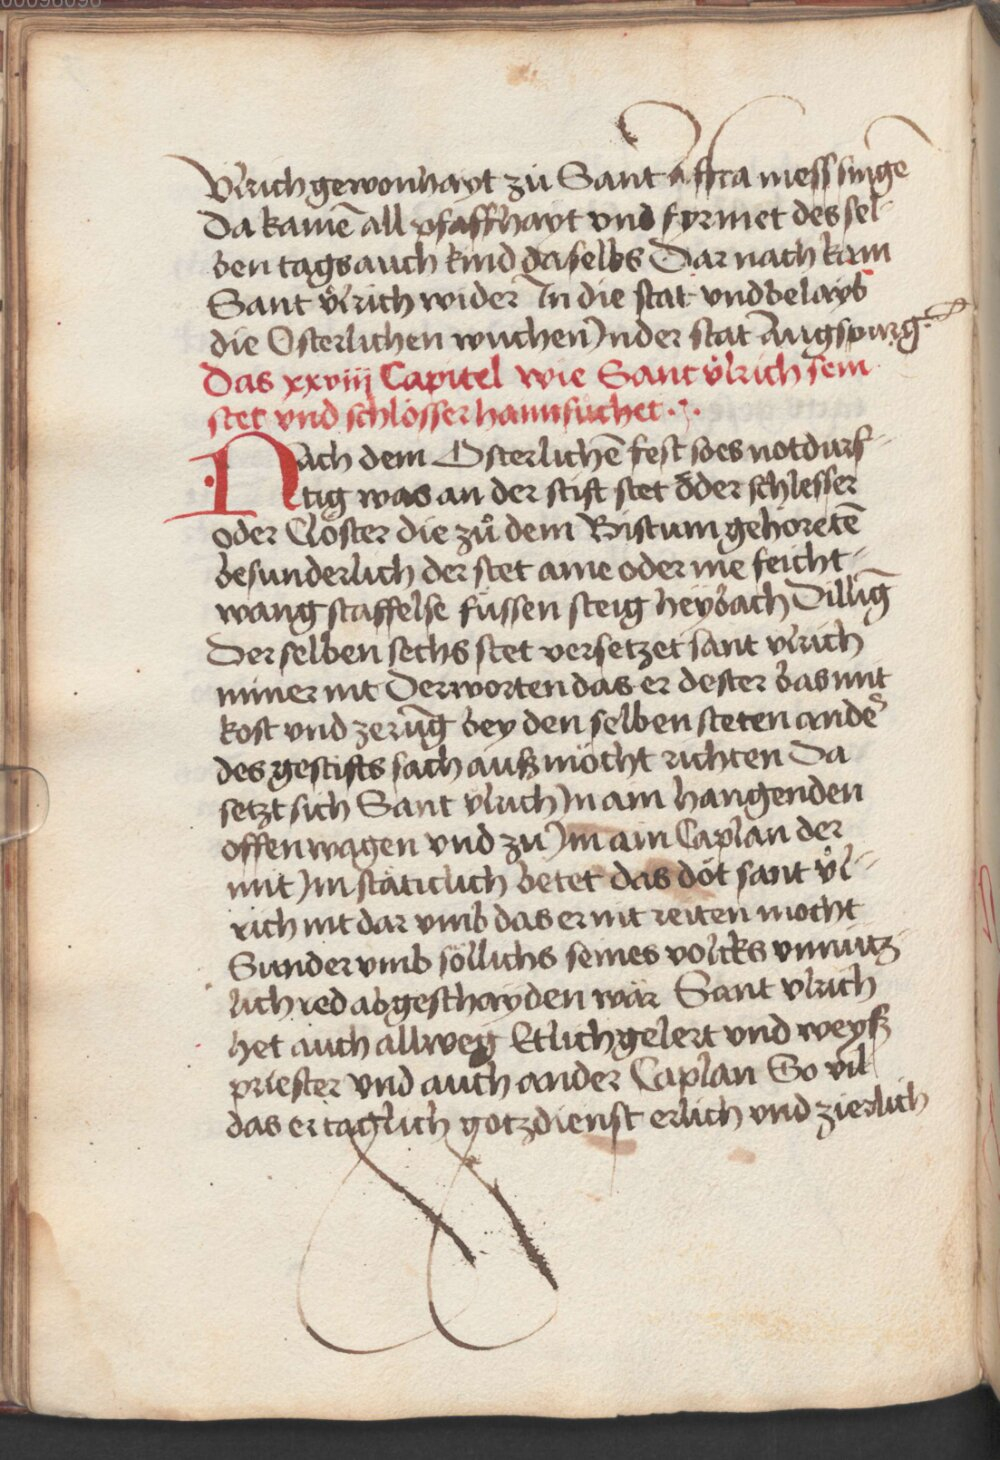 Vlrich gewonhayt zů Sant Affra mess singē
Da kamē all pfaffhayt vnd fyrmet des sel-
ben tags auch kind daselbs Dar nach kam
Sant Vͦlrich wider In die stat vnd belayb
die Osterlichen wuchen Jn der stat Augspurg
Das xxviij Capitel wie Sant Vͦlrich sein
stet vnd schlösser haimsůchet
Nach dem Osterlichē fest so es notdurf-
tig was an der stift stet oder schlesser
oder Clöster die zů dem Bistum gehöretē
besunderlich der stet aine oder me feicht-
wang staffelse füssen steig heybach Dillīg
Der selben sechs stet versetzet sant vlrich
nimer nit Der worten das er dester bas mit
kost vnd zerūg bey den selben steten ander
des gestifts sach auß möcht richten Da
setzt sich Sant vlrich Jn ain hangenden
offen wagen vnd zu Jm ain Caplan der
mit Jm stäticlich betet das döt sant Vͦl-
rich nit dar vmb das er nit reiten mocht
Sunder vmb söllichs seines volcks vnnütz
lich red abgeschayden wär Sant vlrich
het auch allweg Etlich gelert vnd weyß
priester vnd auch ander Caplan So vil
das er taglich gotzdienst erlich vnd zierlich